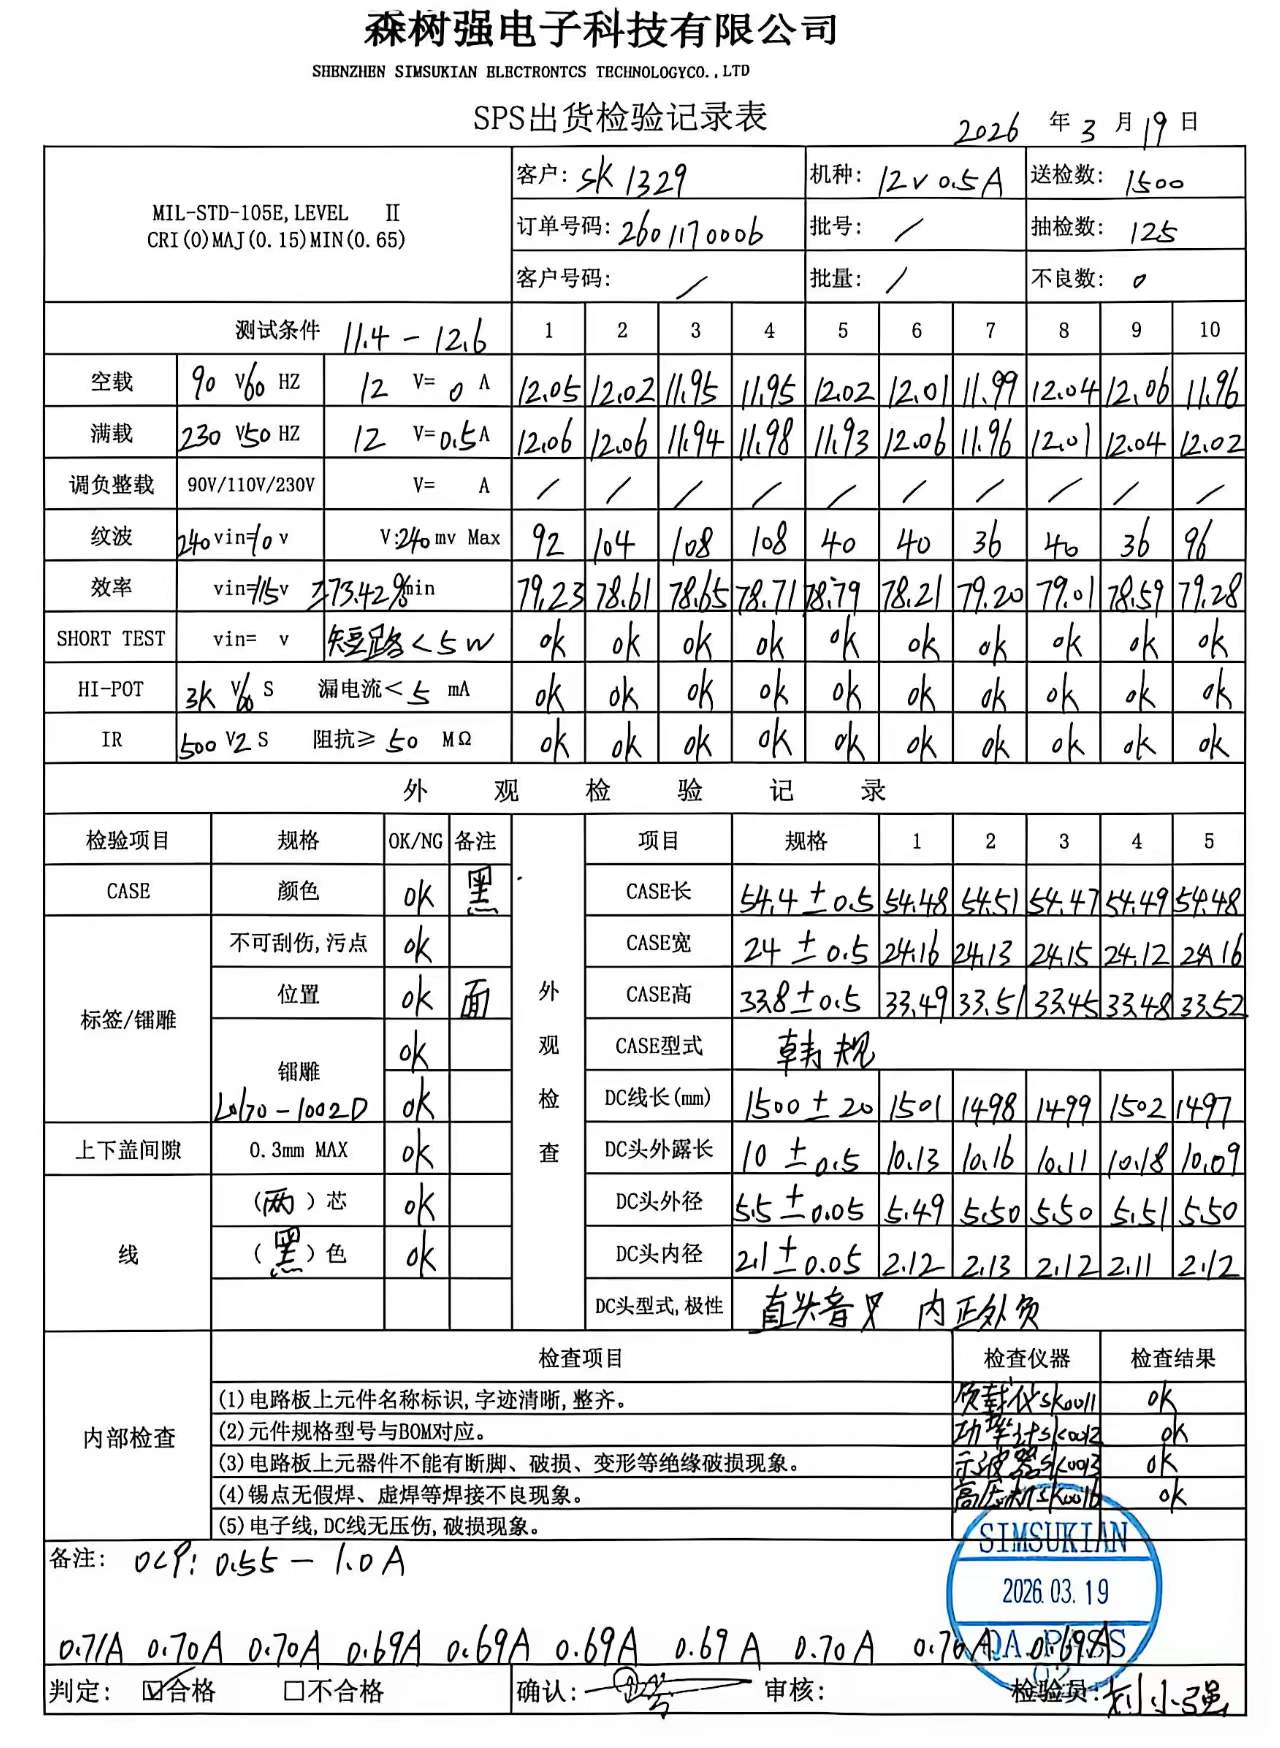 森树强电子科技有限公司
SHENZHEN SIMSUKIAN ELECTRONTCS TECHNOLOGYCO.,LTD
SPS出货检验记录表
2026 年 3 月 19 日
MIL-STD-105E,LEVEL Ⅱ
CRI(0)MAJ(0.15)MIN(0.65)
客户: SK 1329 机种: 12V 0.5A 送检数: 1500
订单号码: 2601170006 批号: / 抽检数: 125
客户号码: / 批量: / 不良数: 0
测试条件 11.4 - 12.6 1 2 3 4 5 6 7 8 9 10
空载 90 V60 HZ 12 V= 0 A 12.05 12.02 11.95 11.95 12.02 12.01 11.99 12.04 12.06 11.96
满载 230 V50 HZ 12 V=0.5A 12.06 12.06 11.94 11.98 11.93 12.06 11.96 12.01 12.04 12.02
调负整载 90V/110V/230V V= A / / / / / / / / / /
纹波 240vin=10 v V:240mv Max 92 104 108 108 40 40 36 40 36 96
效率 vin=115v ≥73.42%min 79.23 78.61 78.65 78.71 78.79 78.21 79.20 79.01 78.59 79.28
SHORT TEST vin= v 短路<5W ok ok ok ok ok ok ok ok ok ok
HI-POT 3K V60 S 漏电流<5 mA ok ok ok ok ok ok ok ok ok ok
IR 500 V2 S 阻抗≥ 50 MΩ ok ok ok ok ok ok ok ok ok ok
外观检验记录
检验项目 规格 OK/NG 备注 外观检查 项目 规格 1 2 3 4 5
CASE 颜色 ok 黑 CASE长 54.4±0.5 54.48 54.51 54.47 54.49 54.48
标签/镭雕 不可刮伤,污点 ok CASE宽 24±0.5 24.16 24.13 24.15 24.12 24.16
位置 ok 面 CASE高 33.8±0.5 33.49 33.51 33.45 33.48 33.52
镭雕 ok CASE型式 韩规
-1002D ok DC线长(mm) 1500±20 1501 1498 1499 1502 1497
上下盖间隙 0.3mm MAX ok DC头外露长 10±0.5 10.13 10.16 10.11 10.18 10.09
线 (两)芯 ok DC头外径 5.5±0.05 5.49 5.50 5.50 5.51 5.50
(黑)色 ok DC头内径 2.1±0.05 2.12 2.13 2.12 2.11 2.12
DC头型式,极性 直头音叉 内正外负
内部检查 检查项目 检查仪器 检查结果
(1)电路板上元件名称标识,字迹清晰,整齐。 负载仪SK0011 ok
(2)元件规格型号与BOM对应。 功率计SK0012 ok
(3)电路板上元器件不能有断脚、破损、变形等绝缘破损现象。 示波器SK0013 ok
(4)锡点无假焊、虚焊等焊接不良现象。 高压机SK0016 ok
(5)电子线,DC线无压伤,破损现象。
备注: OCP: 0.55 - 1.0A
SIMSUKIAN
2026.03.19
QA PASS
0.71A 0.70A 0.70A 0.69A 0.69A 0.69A 0.69A 0.70A 0.70A 0.69A
判定: ☑合格 □不合格 确认: 审核: 检验员: 刘小强